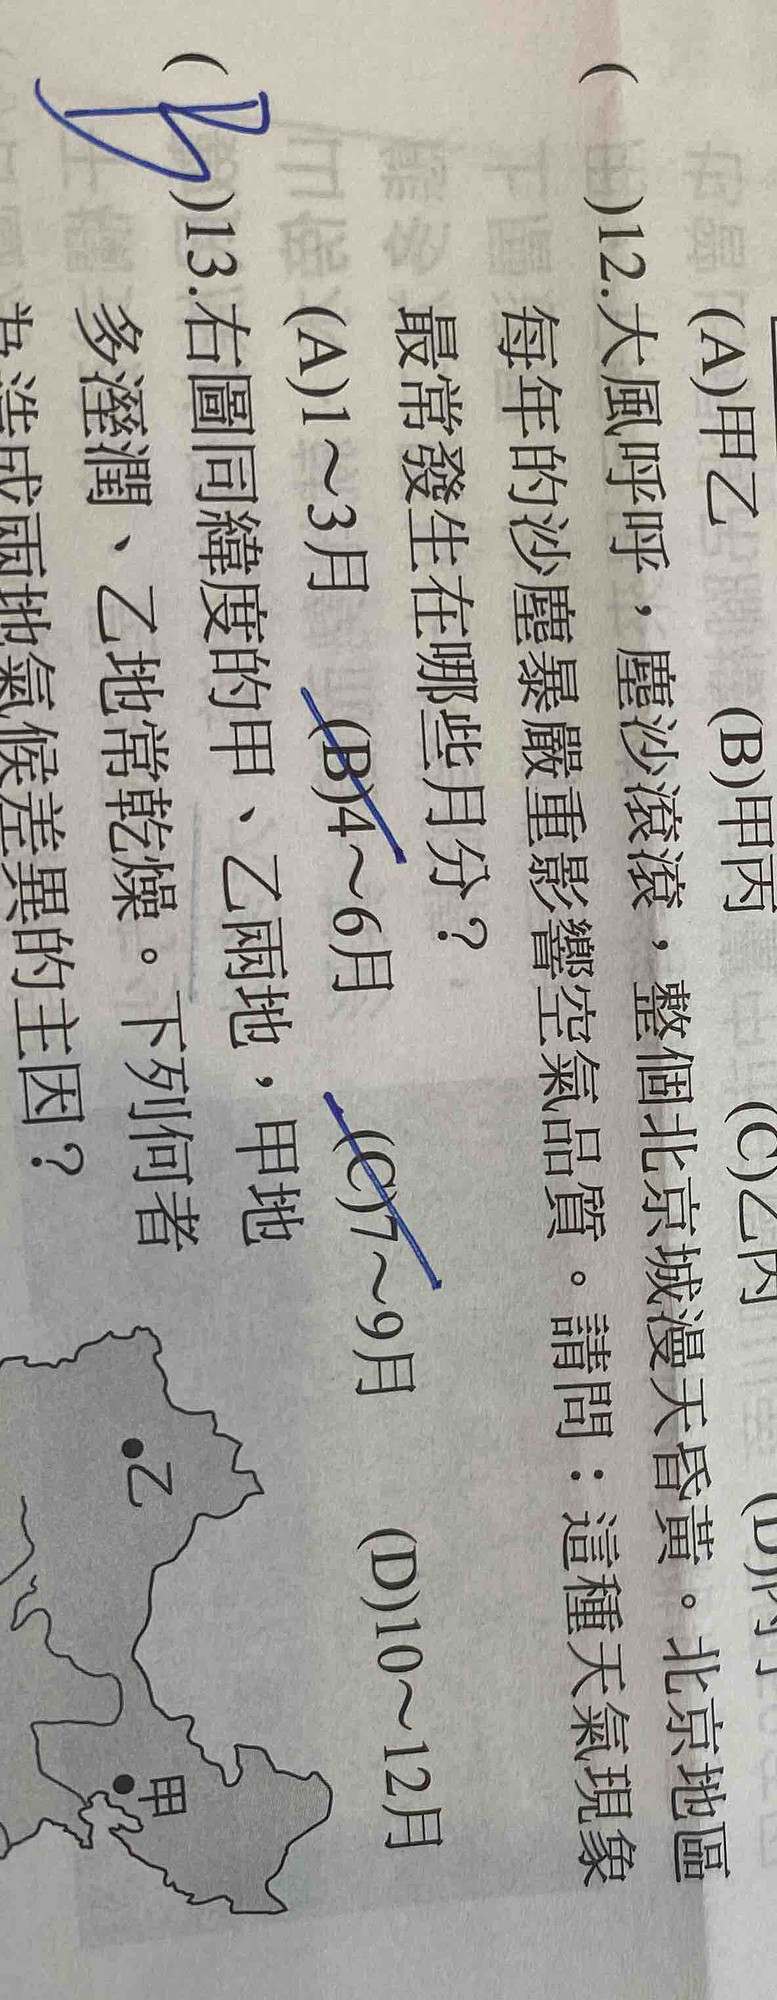 (A)甲乙 (B)甲丙 (C)乙丙
( )12.大風呼呼，塵沙滾滾，整個北京城漫天昏黃。北京地區
每年的沙塵暴嚴重影響空氣品質。請問：這種天氣現象
最常發生在哪些月分？
(A)1～3月 (B)4～6月 (C)7～9月 (D)10～12月
(B)13.右圖同緯度的甲、乙兩地，甲地
多溼潤、乙地常乾燥。下列何者
為造成兩地氣候差異的主因？
乙
甲